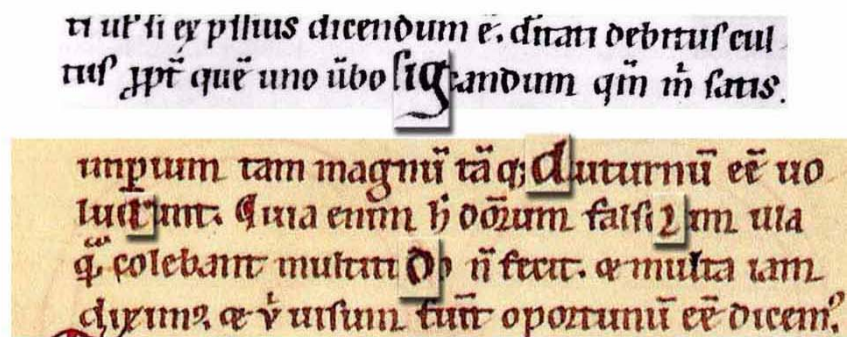 ti ut̄ si exp̄ssius dicendum ē. dīntati debitus cul
tus ꝓpt̄ quē uno ūbo sigcandum qm̄ mⁱ satis.
imꝑium tam magnū tāq; diuturnū eē uo
luerunt. Quia enim h̄ dōrum falsiꝛ im illa
q̄ᵃ colebant multiti do n̄ fecit. & multa iam
diximꝰ. & vⁱ uisum fuīt oportunū eē dicemꝰ.